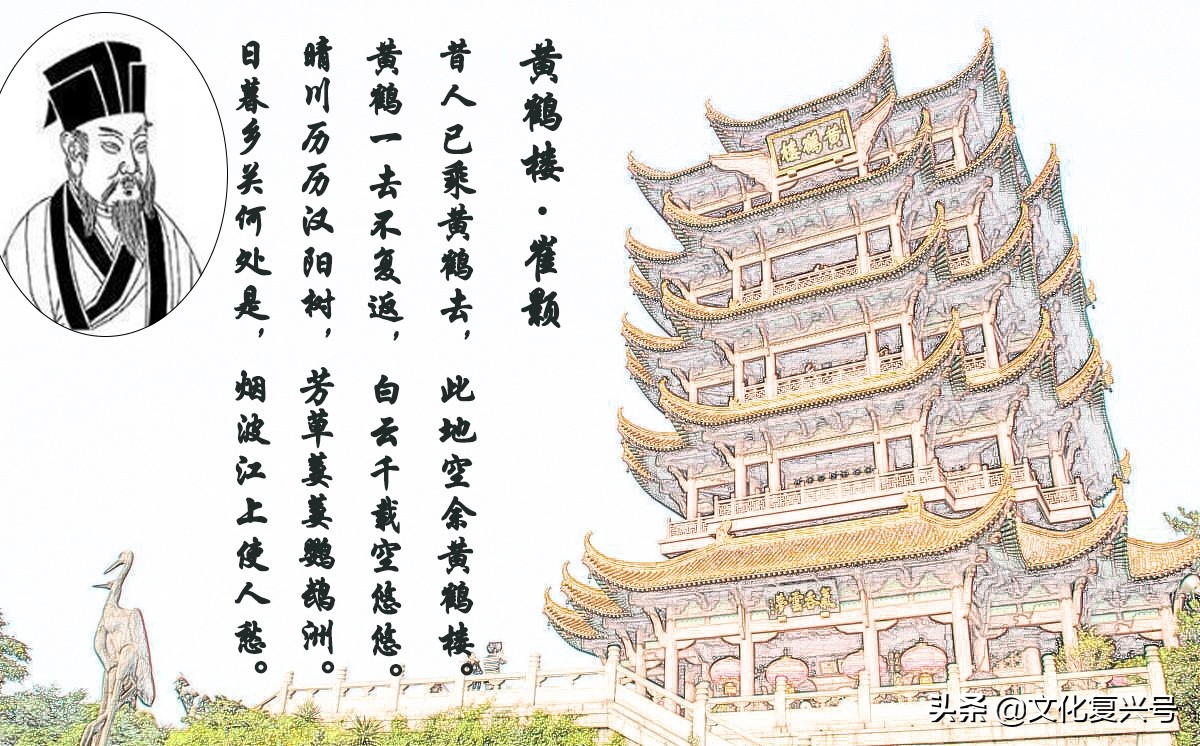 黄鹤楼·崔颢
昔人已乘黄鹤去，此地空余黄鹤楼。
黄鹤一去不复返，白云千载空悠悠。
晴川历历汉阳树，芳草萋萋鹦鹉洲。
日暮乡关何处是，烟波江上使人愁。
黄鶴樓
氣吞雲夢
头条 @文化复兴号